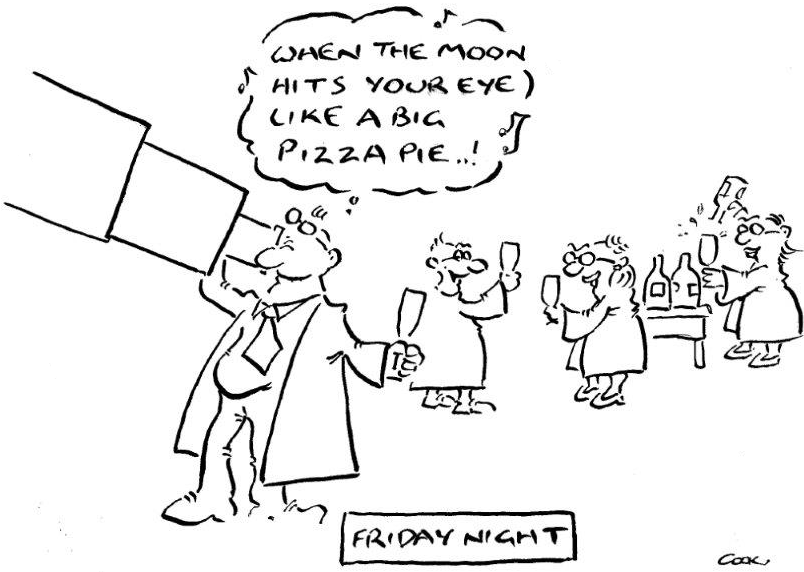 WHEN THE MOON
HITS YOUR EYE
LIKE A BIG
PIZZA PIE..!
FRIDAY NIGHT
COOK